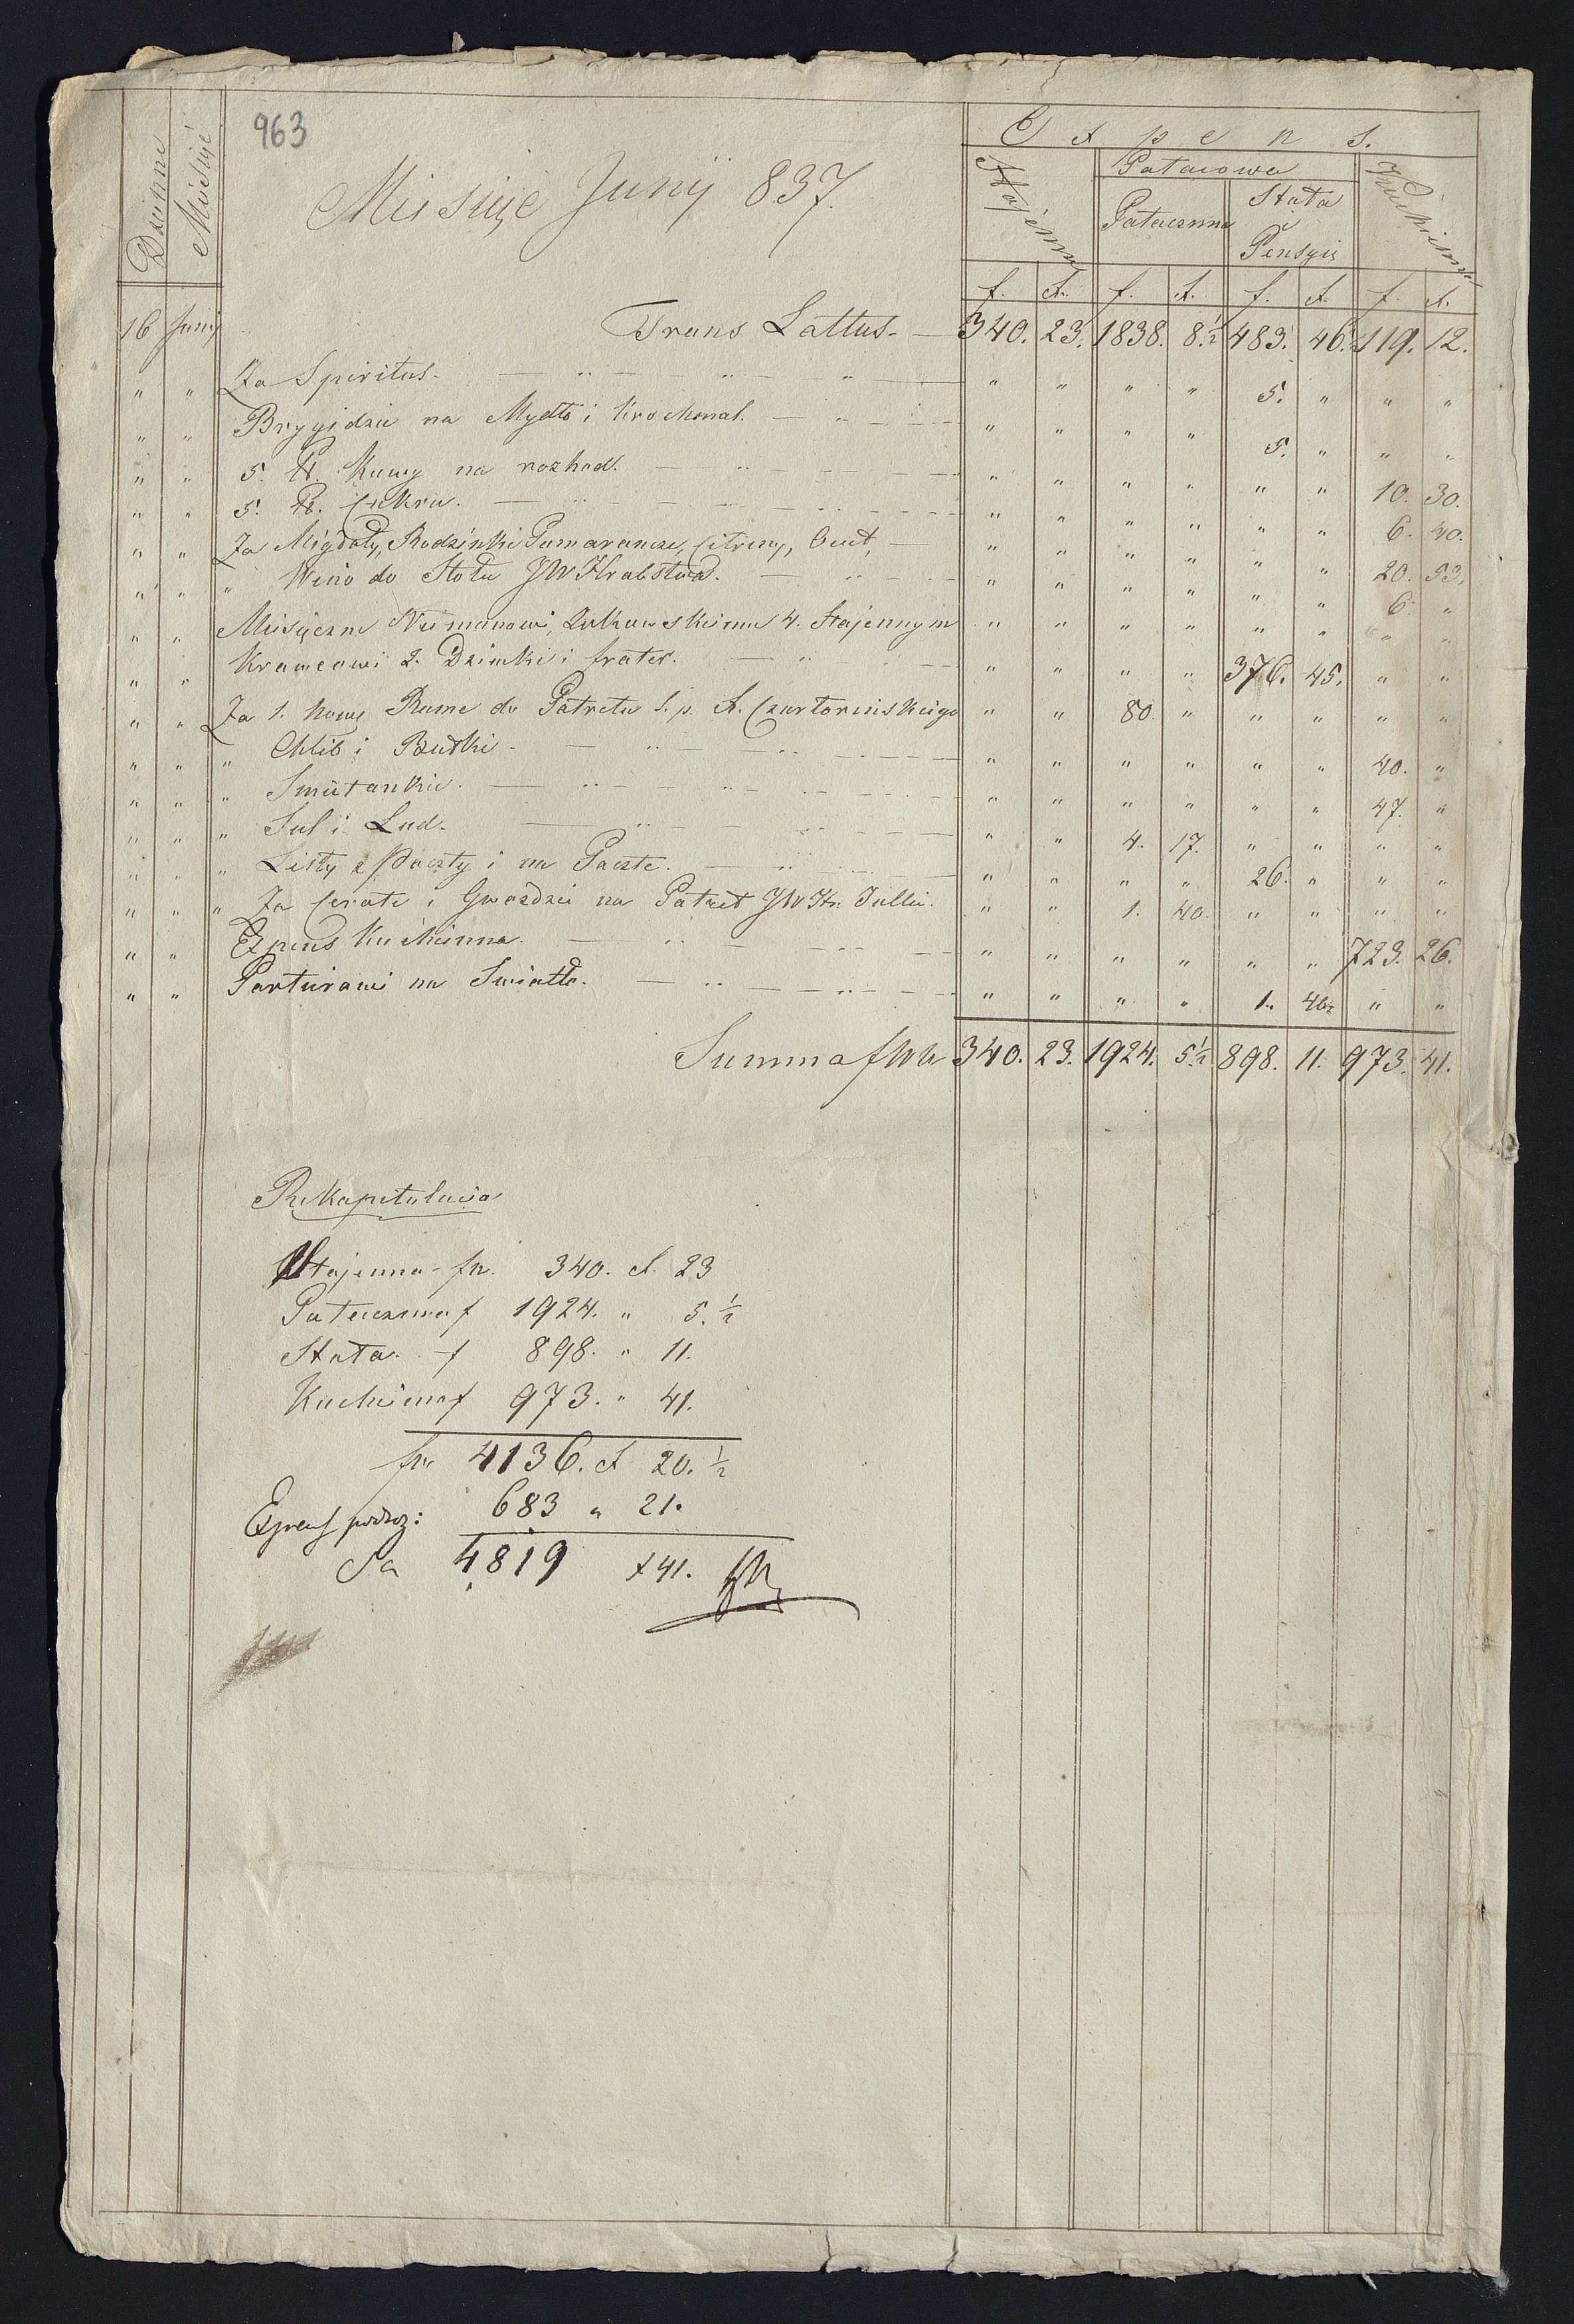 963
Miesięć Junÿ 837.
Dzienne
Miesięć
E x p e n s.
Stajenna
Pałacowa
Kuchienna
Pałaczanna
Stała i Pensyię
f. x. f. x. f. x. f. x.
16 Juny Trans Lattus. — 340. 23. 1838. 8.½ 483. 46. 119. 12.
" " Za Spiritus. " " " " 5. " " "
" " Brygidzie na Mydło i Krochmal. " " " " 5. " " "
" " 5. ℔. Kawy na rozhod. " " " " " " 10. 30.
" " 5. ℔. Cukru. " " " " " " 6. 40.
" " Za Migdały, Rodzinki Pamarancze, Citriny, Ocet, " " " " " " 20. 53.
" " " Wino do Stołu JW Hrabstwa. " " " " " " 6. "
" " Miesięczne Neimanowi, Łukawskiemu 4. Stajennym " " " " " " " "
" " Krawcowi 2. Dziewki i frater. " " " " 376. 45. " "
" " Za 1. nowe Rame do Patretu ś. p. X. Czartorinskiego " " 80. " " " " "
" " " Chlib i Bułki. " " " " " " 40. "
" " " Smietankie. " " " " " " 47. "
" " " Sul i Lud. " " 4. 17. " " " "
" " " Listy z Poczty i na Poczte. " " " " 26. " " "
" " " Za Cerate i Gwozdzie na Patret JW Hr. Jullii. " " 1. 40. " " " "
" " Expens Kuchienna. " " " " " " 723. 26.
" " Partierowi na Swiatło. " " " " 1. 40. " "
Summa f W W 340. 23. 1924. 5½ 898. 11. 973. 41.
Rekapitulacia
Stajenna fr. 340. x 23
Pałaczanna f 1924. " 5.½
Stała. f 898. " 11.
Kuchienna f 973. " 41.
fr. 4136. x 20.½
Expens podroz: 683 " 21.
Sa 4819 x 41.